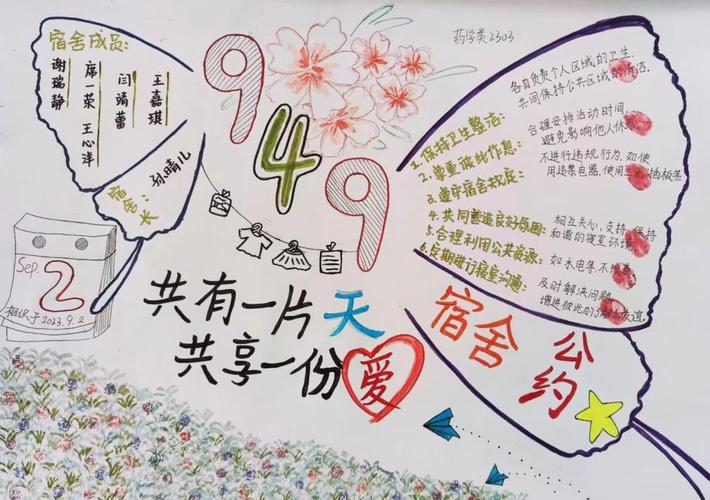 药学类2303
宿舍成员:
王嘉琪
闫靖蕾
席一荣 王心洋
谢瑞静
宿舍长
孙晴儿
949
Sep.
2
相识于2023.9.2
共有一片天
共享一份爱
1.保持卫生整洁:
各自负责个人区域的卫生.
共同保持公共区域的清洁.
2.尊重彼此作息:
合理安排活动时间,
避免影响他人休
3.遵守宿舍规定:
不进行违规行为,如使
用违禁电器,使用 插板等
4.共同营造良好氛围:
相互关心,支持,保持
和谐的寝室环境
5.合理利用公共资源:
如水电等,不浪费
6.定期进行寝室沟通:
及时解决问题
增进彼此的 友谊
宿舍
公约